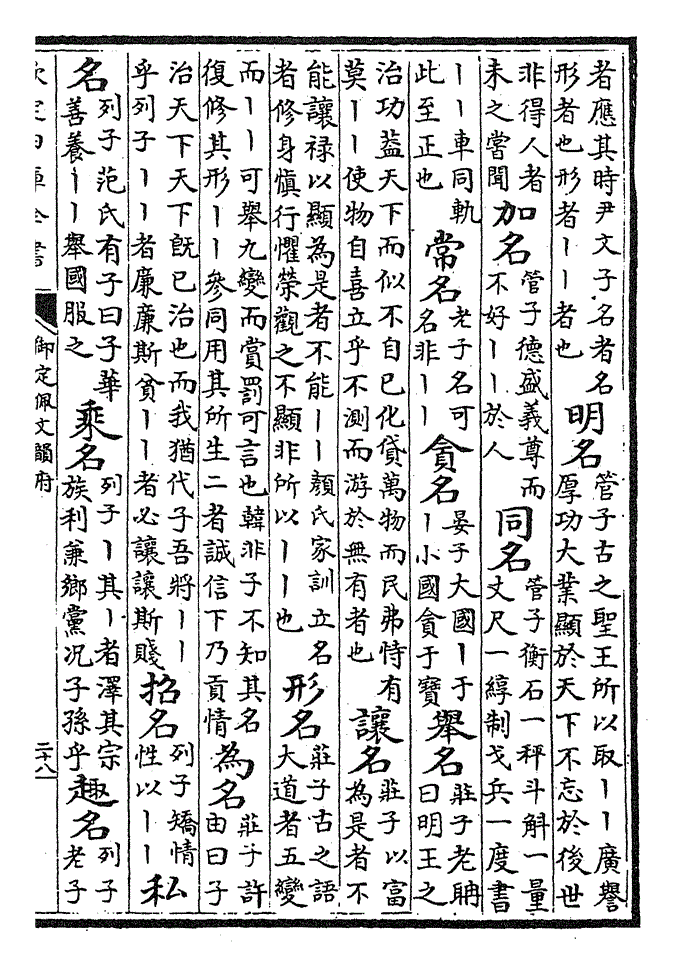 者應其時尹文子名者名形者也形者丨丨者也 明名 管子古之聖王所以取丨丨廣譽厚功大業顯於天下不忘於後世
非得人者未之嘗聞 加名 管子德盛義尊而不好丨丨於人 同名 管子衡石一秤斗斛一量丈尺一綧制戈兵一度書
丨丨車同軌此至正也 常名 老子名可名非丨丨 貪名 晏子大國丨于丨小國貪于實 舉名 莊子老聃曰明王之
治功蓋天下而似不自已化貸萬物而民弗恃有莫丨丨使物自喜立乎不測而游於無有者也 讓名 莊子以富為是者不
能讓祿以顯為是者不能丨丨顏氏家訓立名者修身慎行懼榮觀之不顯非所以丨丨也 形名 莊子古之語大道者五變
而丨丨可舉九變而賞罰可言也韓非子不知其名復修其形丨丨參同用其所生二者誠信下乃貢情 為名 莊子許由曰子
治天下天下既已治也而我猶代子吾將丨丨乎列子丨丨者廉廉斯貧丨丨者必讓讓斯賤 招名 列子矯情性以丨丨 私
名 列子范氏有子曰子華善養丨丨舉國服之 乘名 列子丨其丨者澤其宗族利兼鄉黨况子孫乎 趣名 列子老子
欽定四庫全書 御定佩文韻府 二十八